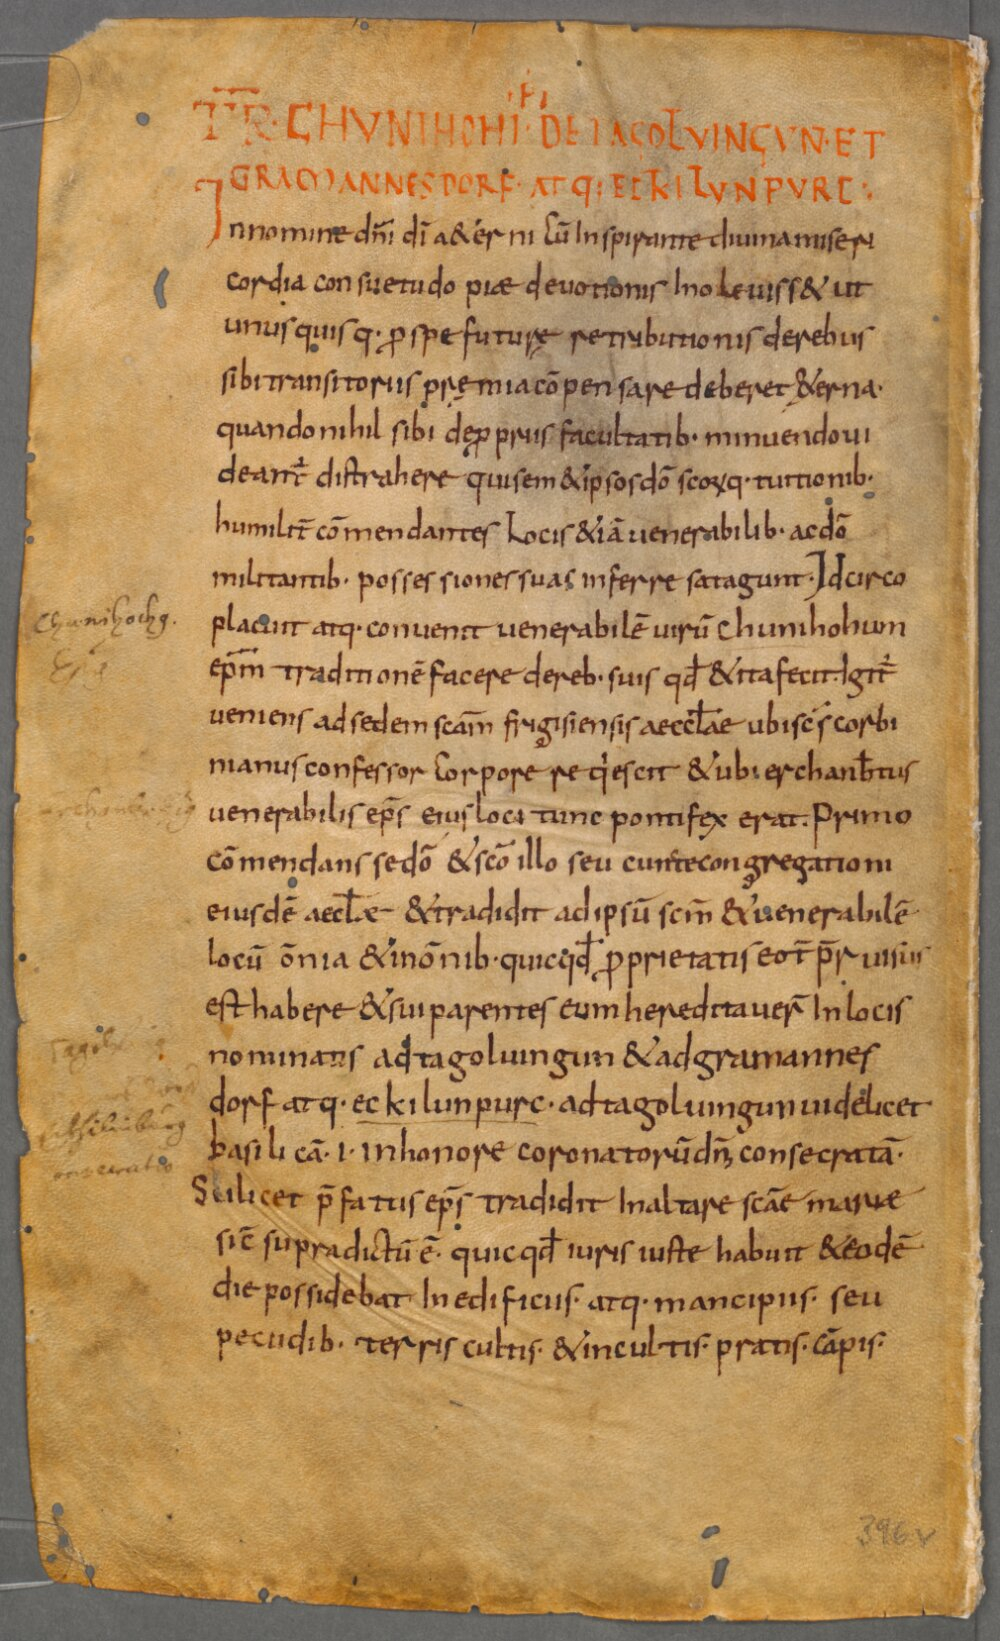 TR̄·CHVNIHOHI·EPĪ DE TAGOLVINGVN·ET
GRAMANNESDORF·ATQ:ECKILVNPVRC:·
In nomine dn̄i dī a&erni Cū Inspirante diuina miseri
cordia consuetudo piae deuotionis Inoleuiss& ut
unusquisq· ꝓ spe futurę retributionis de rebus
sibi transitoriis pręmia cōpensare deberet &erna·
quando nihil sibi de ꝓpriis facultatib· minuendo ui
deant᷑ distrahere qui sem&ipsos dō scoꝝq· tuitionib·
humilit̄ cōmendantes Locis &iā uenerabilib· ac dō
militantib· possessiones suas inferre satagunt· Idcirco
placuit atq· conuenit uenerabilē uirū chunihohum
ep̄m traditionē facere de reb· suis qd̄ &ita fecit. Igit᷑
ueniens ad sedem scām frigisiensis aecclāe ubi scs̄ corbi
nianus confessor Corpore reqͥescit &ubi erchanb̄tus
uenerabilis ep̄s eius loci tunc pontifex erat. Primo
cōmendans se dō &scō illo seu cunctecongregationi
eiusdē aeclae &tradidit ad ipsū scm̄ &uenerabilē
locū ōnia &in ōnib· quicqd̄ ꝓprietatis eot̄ p̄r uisus
est habere &sui parentes eum hereditauer̄ In locis
nominatis ad tagoluingun &ad gramannes
dorf atq· eckilunpurc· ad tagoluingun uidelicet
basilicā· I· in honore coronatorū dn̄ꝫ consecratā·
Scilicet p̄fatus ep̄s tradidit In altare scāe mariae
sic̄ supradictū ē· quicqd̄ iuris iuste habuit &eodē
die possidebat In edificiis· atq· mancipiis· seu
pecudib· terris cultis· &incultis· pratis· cāpis·
Chunihochg.
396v